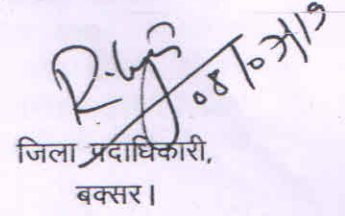 08/07/19
जिला प्रदाधिकारी,
बक्सर।